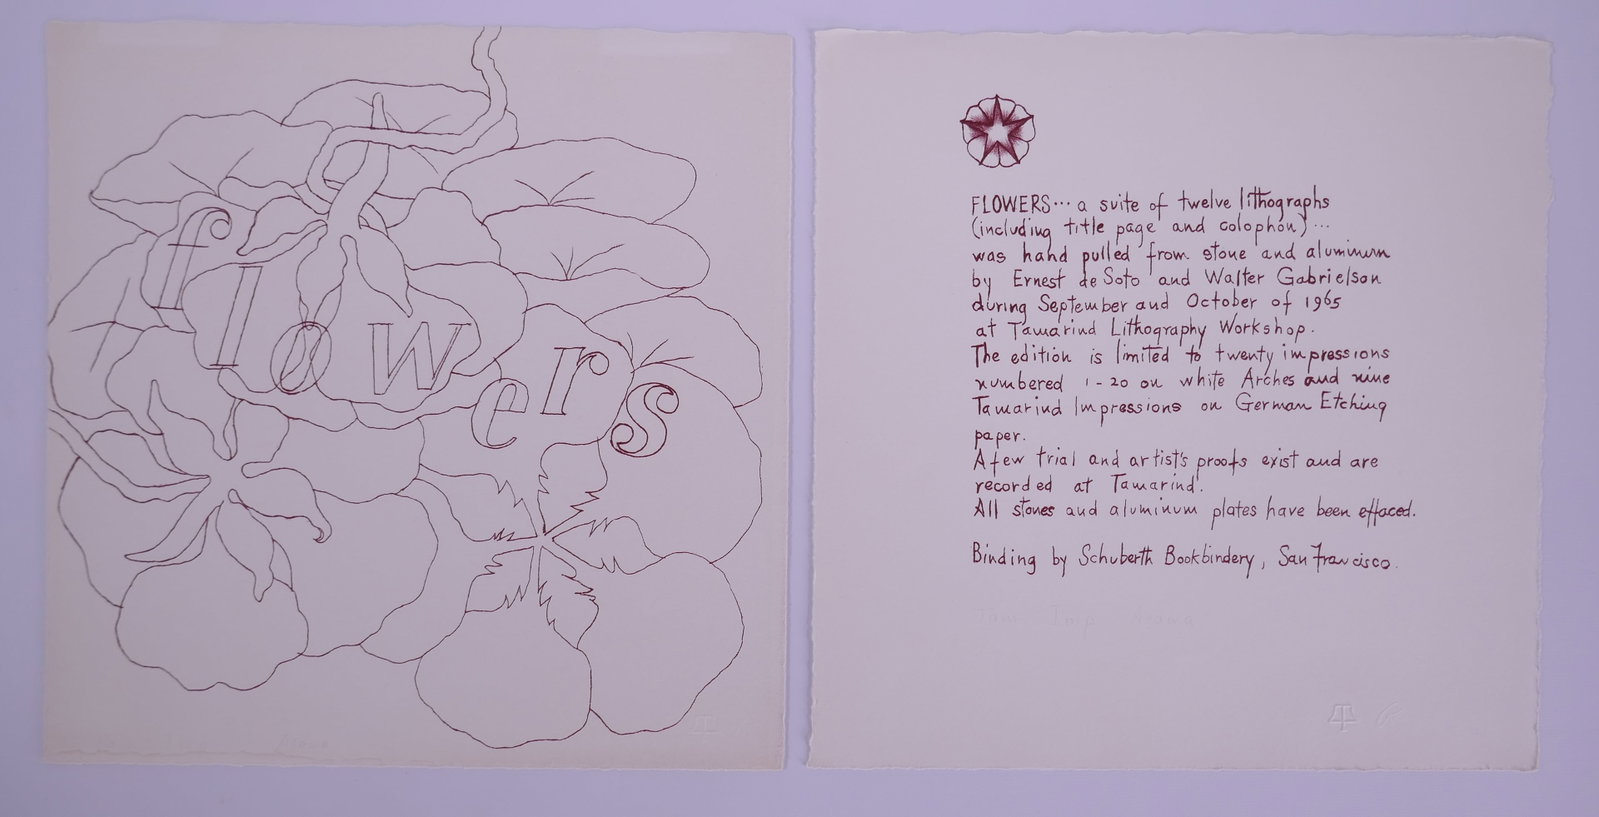 flowers
FLOWERS... a suite of twelve lithographs
(including title page and colophon)...
was hand pulled from stone and aluminum
by Ernest de Soto and Walter Gabrielson
during September and October of 1965
at Tamarind Lithography Workshop.
The edition is limited to twenty impressions
numbered 1-20 on white Arches and nine
Tamarind Impressions on German Etching
paper.
A few trial and artist's proofs exist and are
recorded at Tamarind.
All stones and aluminum plates have been effaced.
Binding by Schuberth Bookbindery, San Francisco.